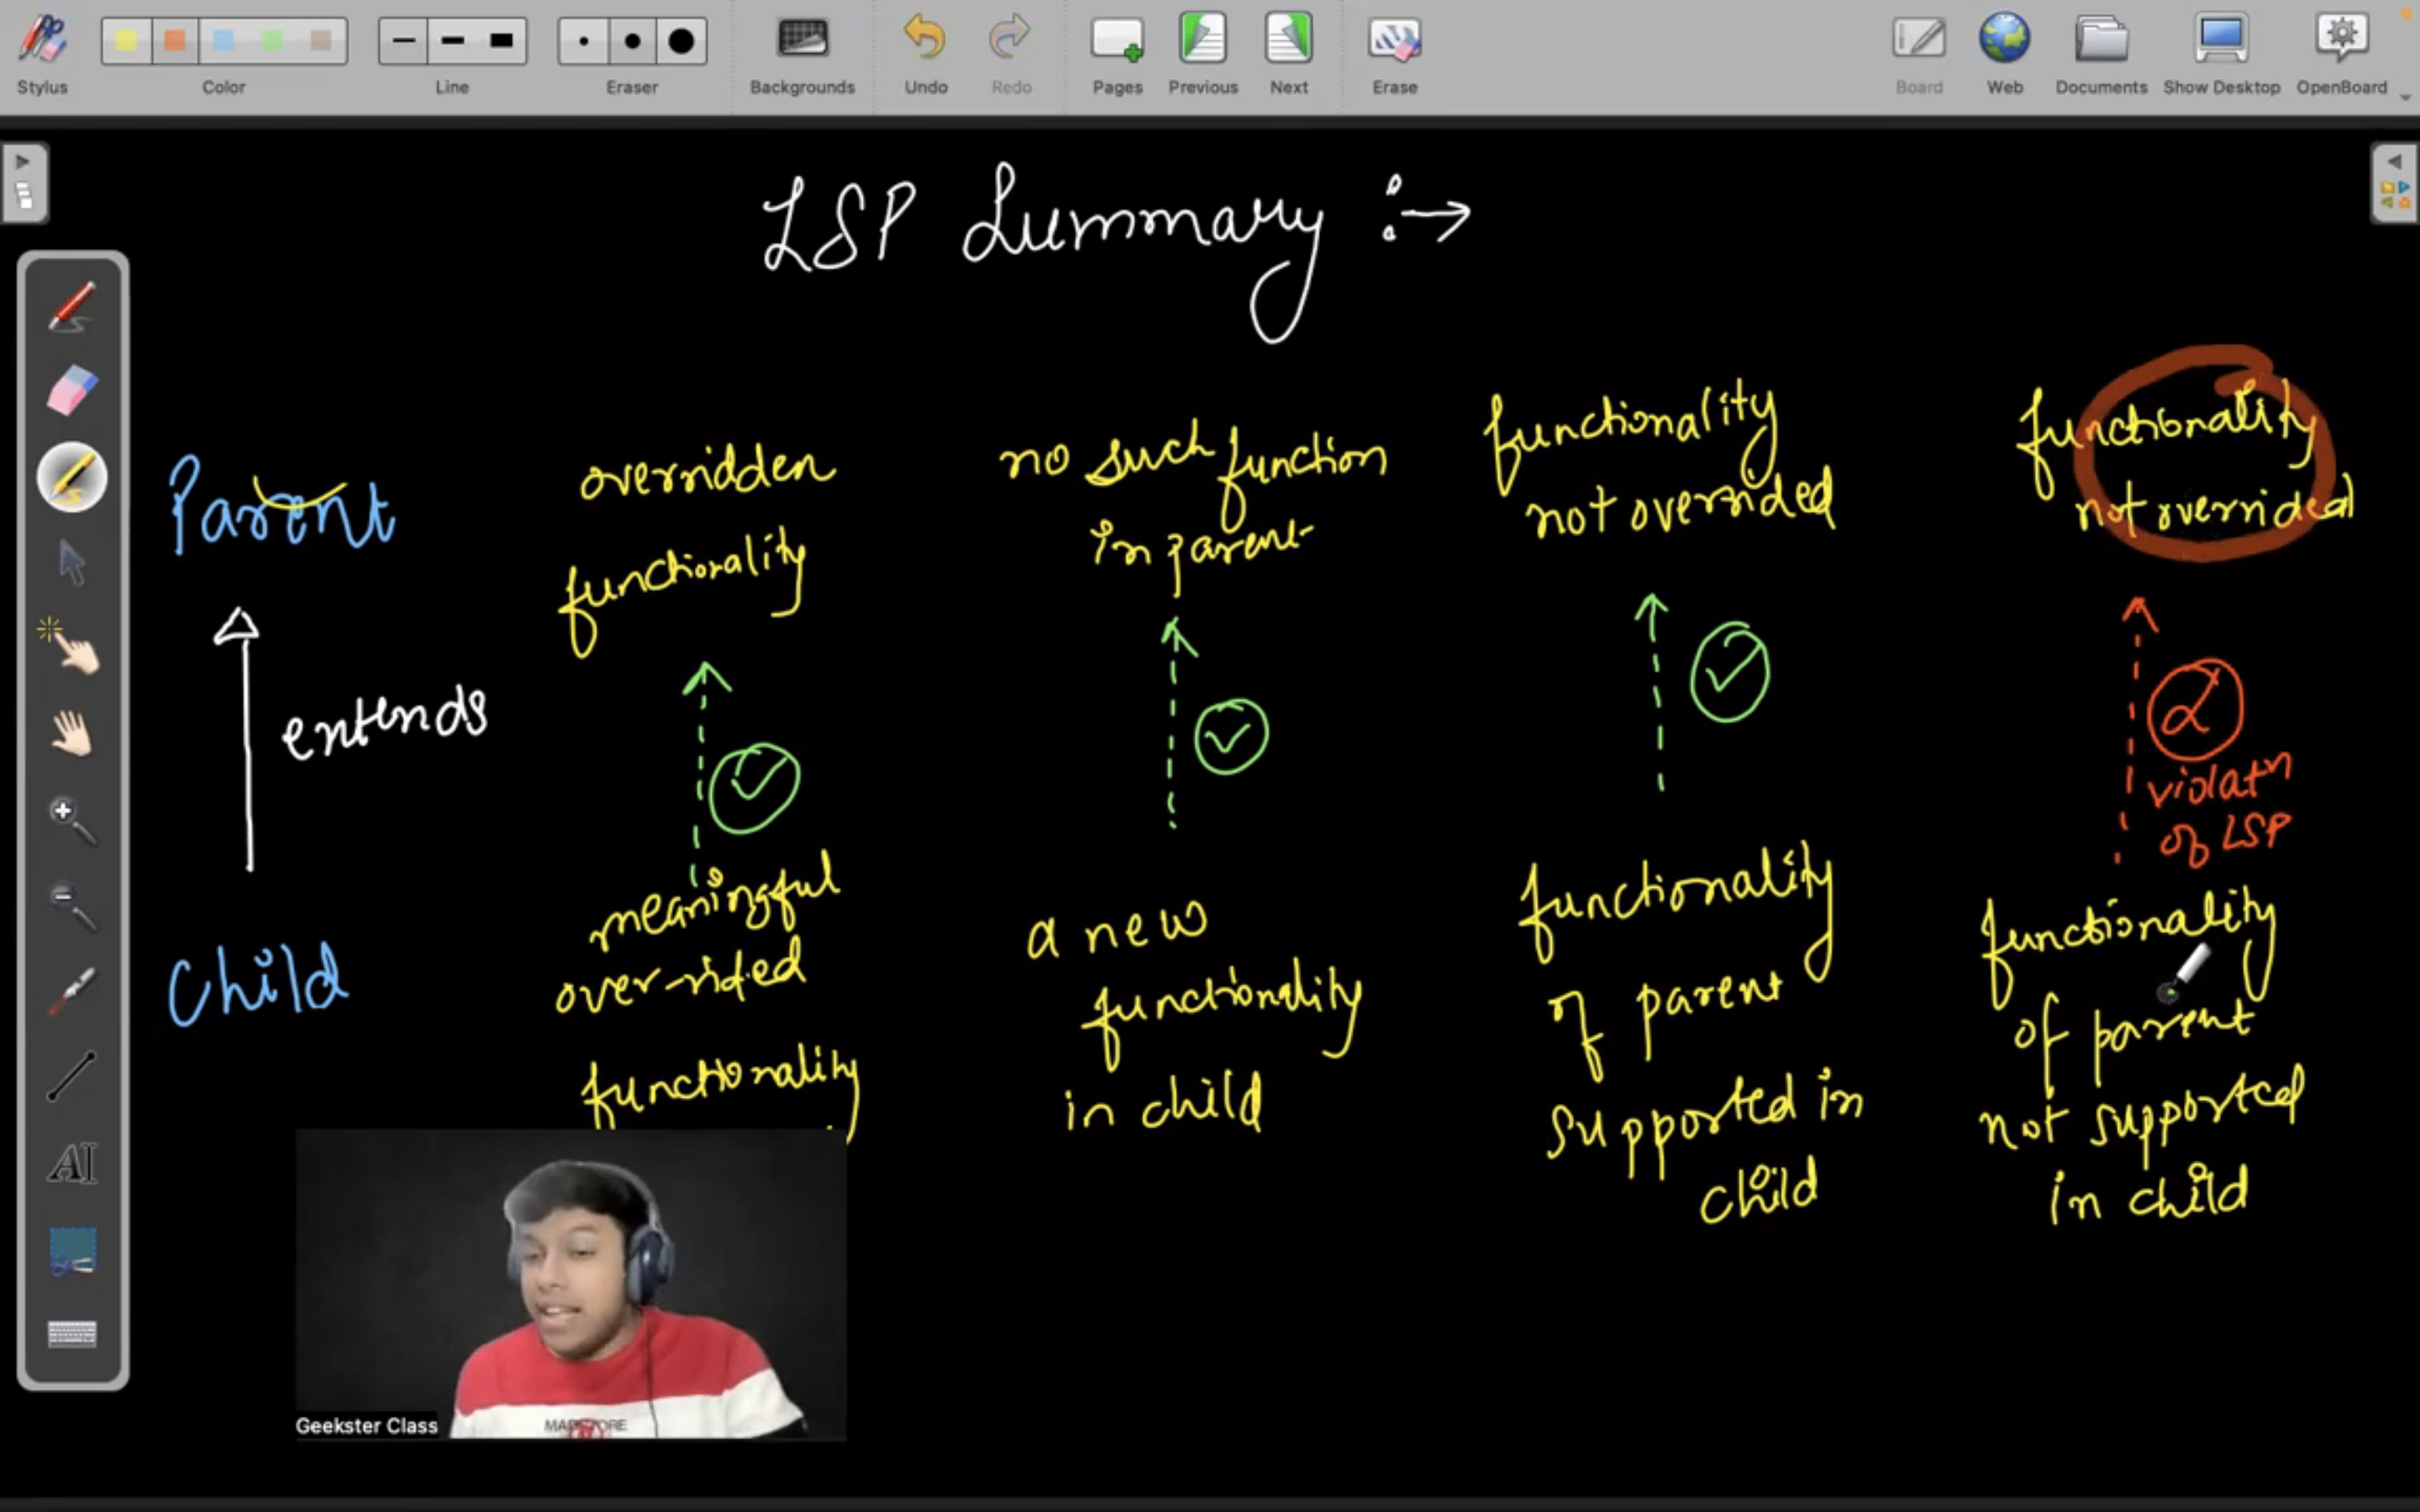 Stylus
Color
Line
Eraser
Backgrounds
Undo
Redo
Pages
Previous
Next
Erase
Board
Web
Documents
Show Desktop
OpenBoard
LSP Summary :→
Parent
extends
Child
overridden
functionality
meaningful
over-rided
functionality
no such function
in parent
a new
functionality
in child
functionality
not overrided
functionality
of parent
supported in
child
functionality
not overrided
violatn
of LSP
functionality
of parent
not supported
in child
AI
Geekster Class